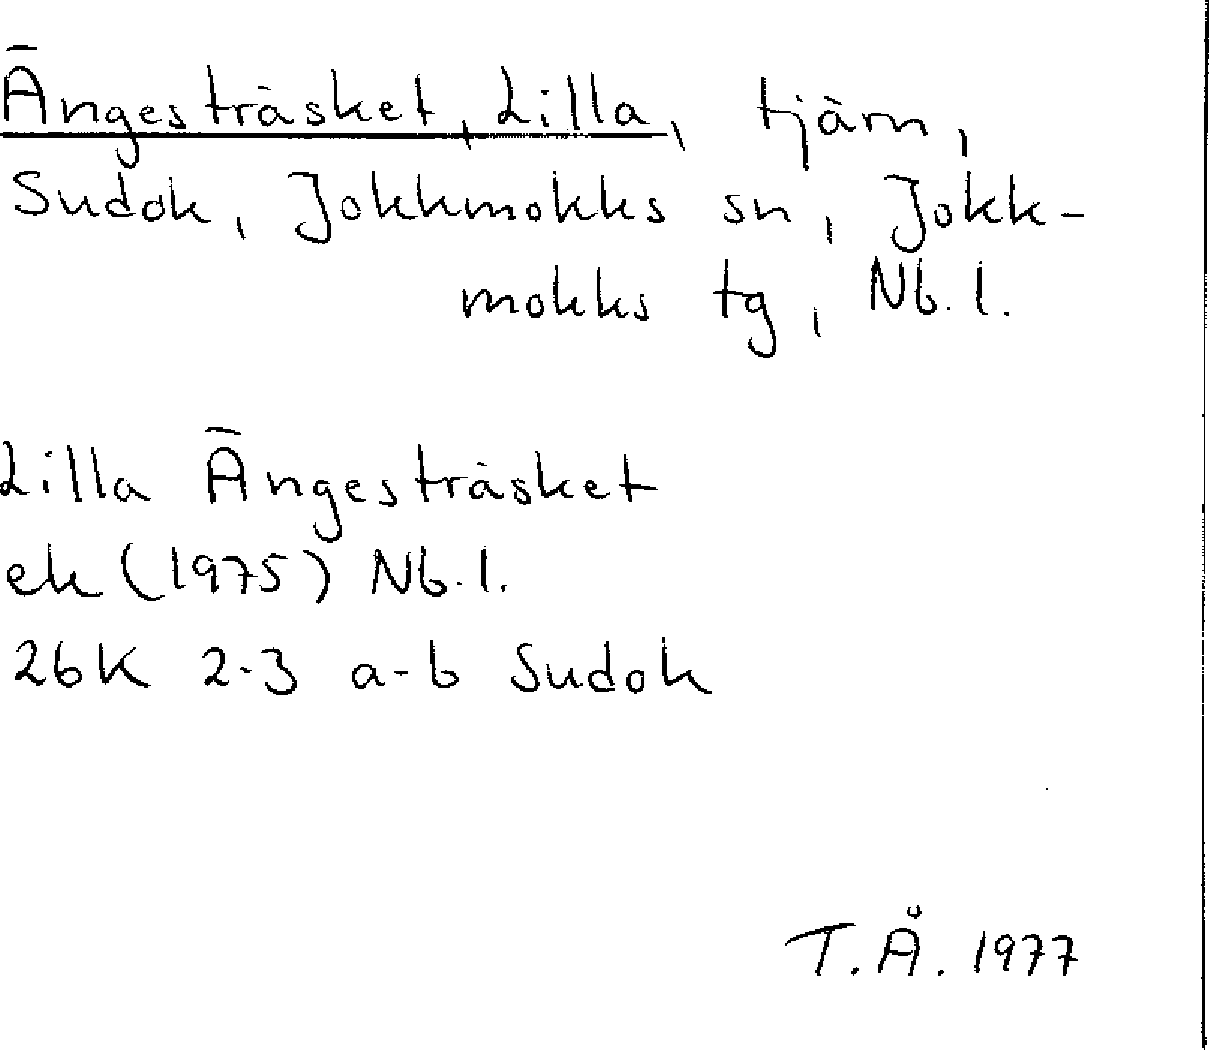 Ängesträsket, Lilla, tjärn,
Sudok, Jokkmokks sn, Jokk-
mokks tg, Nb. l.
Lilla Ängesträsket
ek (1975) Nb. l.
26K 2-3 a-b Sudok
T.Å. 1977